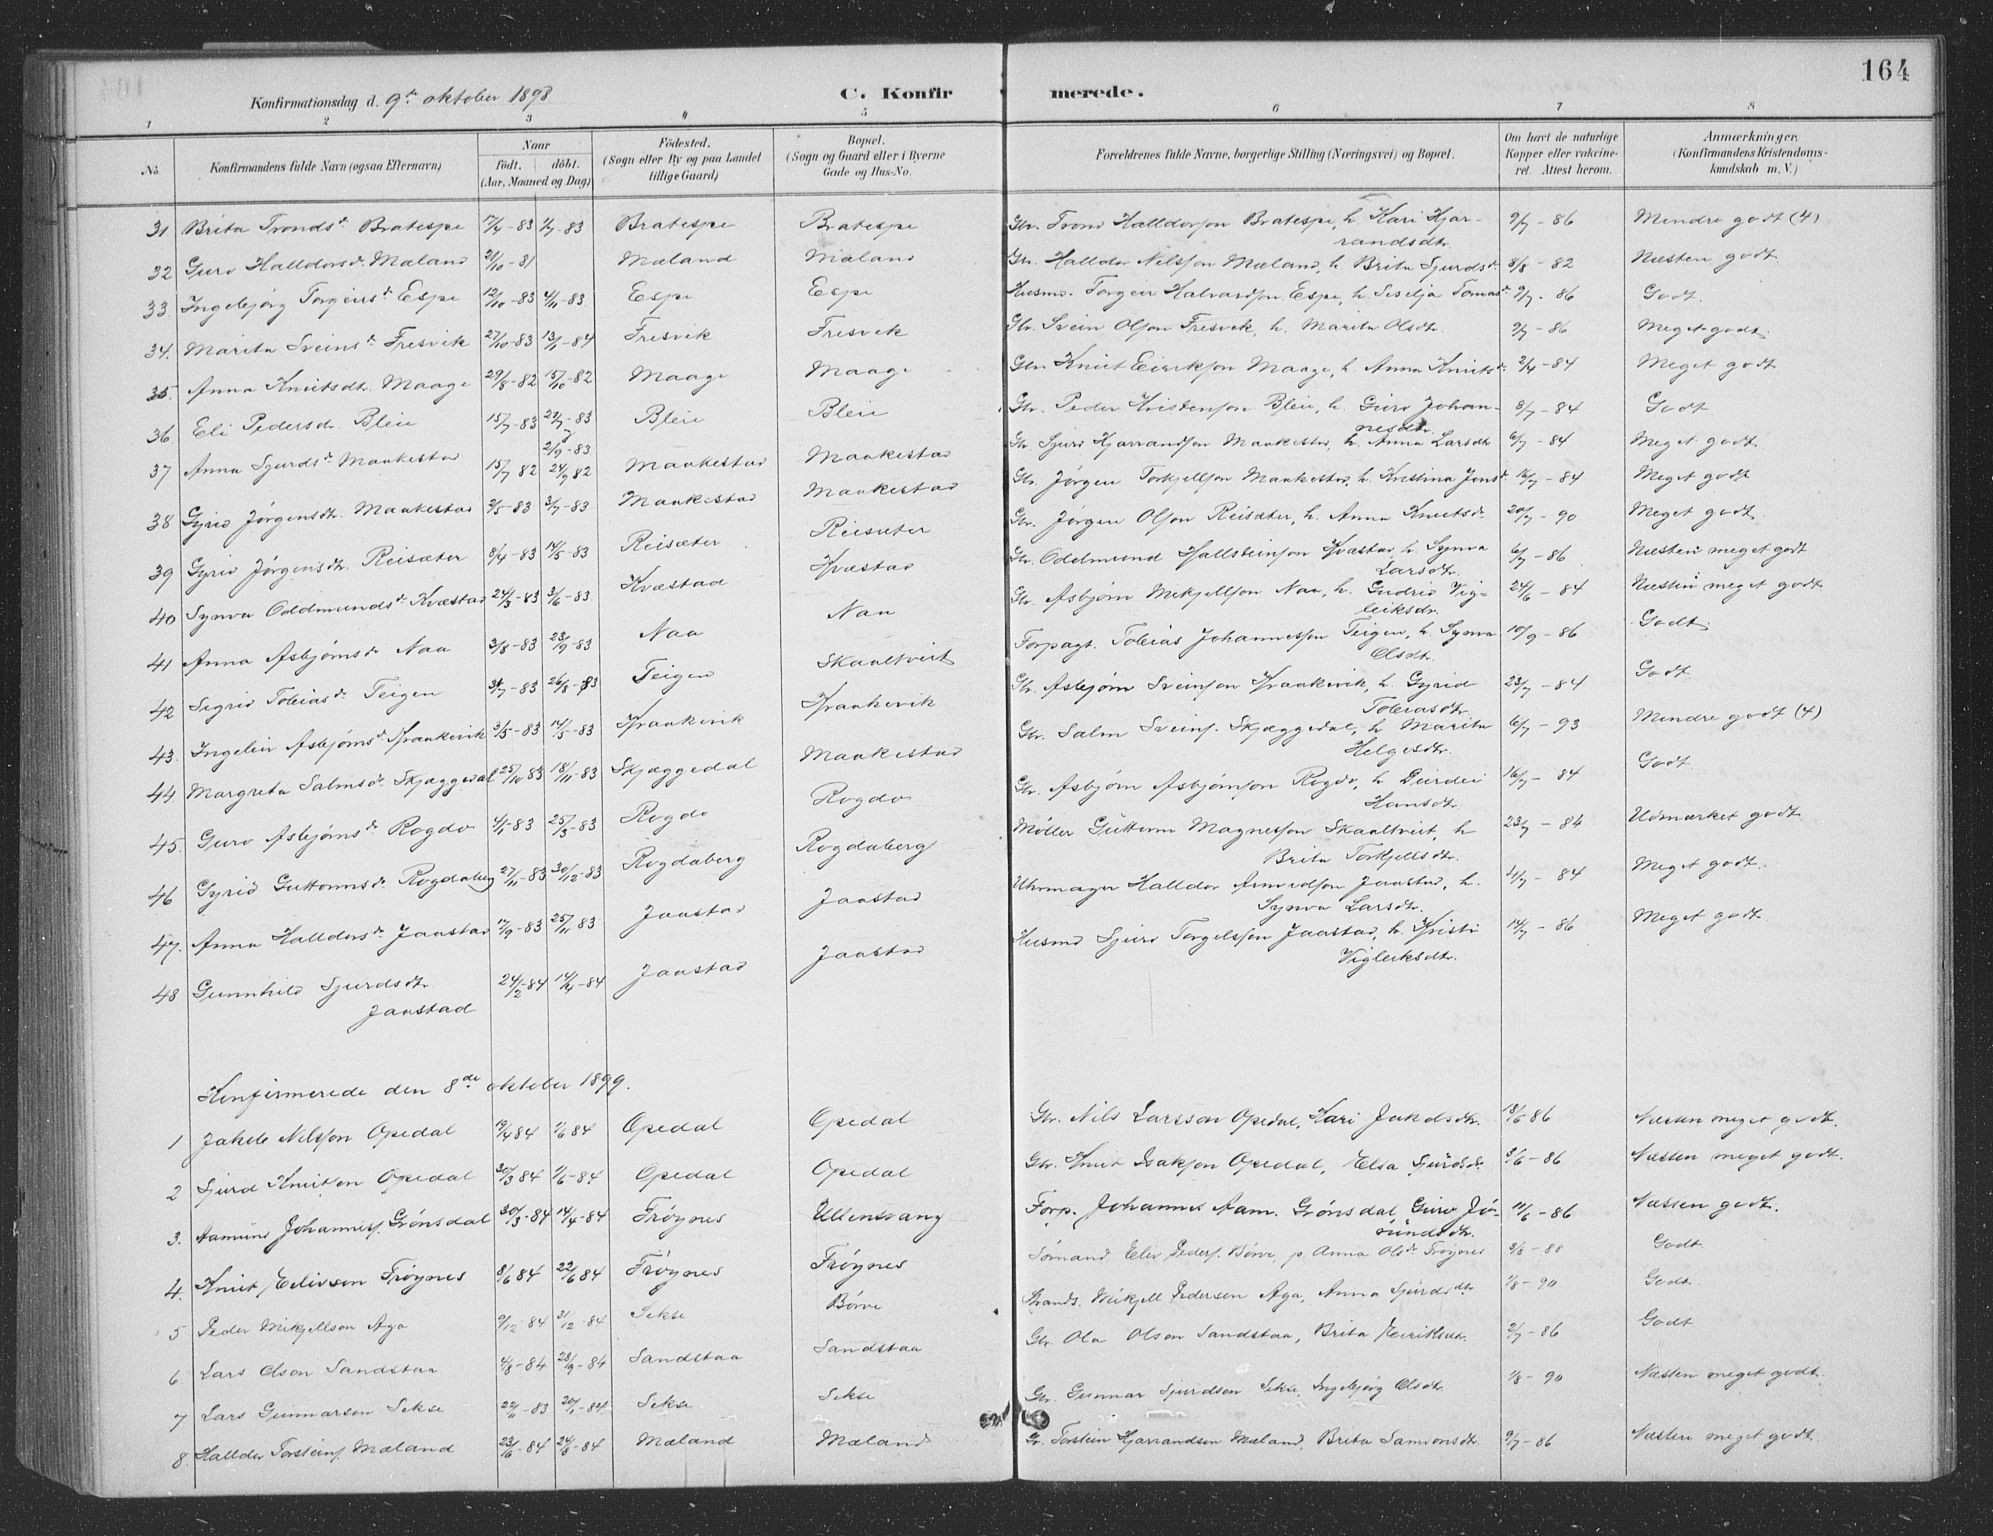 164
Konfirmationsdag d. 9de oktober 1898
C. Konfirmerede.
1 2 3 4 5 6 7 8
No. | Konfirmandens fulde Navn (ogsaa Efternavn) | Naar födt. döbt. (Aar, Maaned og Dag) | Födested. (Sogn eller By og paa Landet tillige Gaard.) | Bopæl. (Sogn og Gaard eller i Byerne Gade og Hus-No. | Forældrenes fulde Navne, borgerlige Stilling (Næringsvei) og Bopæl. | Om havt de naturlige Kopper eller vakcineret. Attest herom. | Anmærkninger. (Konfirmandens Kristendomskundskab m. V.)
31 Brita Tronds dr. Bratespe 17/4-83 1/7-83 Bratespe Bratespe Gbr. Trond Halldorson Bratespe, h. Kari Hjarrandsdtr. 9/7-86 Mindre godt (4)
32 Guro Halldorsdr. Mæland 21/10-81 Mæland Mæland Gbr. Halldor Nilsson Mæland, h. Brita Sjurdsdr. 8/8-82 Næsten godt
33 Ingebjørg Torgeirsdr. Espe 12/10-83 4/11-83 Espe Espe Husmd. Torgeir Halvardson Espe, h. Sesilja Tomasdr. 9/7-86 Godt
34. Marita Sveinsdr. Fresvik 27/10-83 13/1-84 Fresvik Fresvik Gbr. Svein Olson Fresvik, h. Marita Olsdtr. 9/7-86 Meget godt
35. Anna Knutsdtr. Maage 29/8-82 15/10-82 Maage Maage Gbr. Knut Eirikson Maage, h. Anna Knutsdr. 2/4-84 Meget godt
36 Eli Pedersdr. Bleie 15/7-83 29/7-83 Bleie Bleie Gbr. Peder Kristenson Bleie, h. Guro Johannesdtr. 8/7-84 Godt
2/9-83
37 Anna Sjurdsdr. Maakestad 15/7 82 24/9 82 Maakestad Maakestad Gbr. Sjurd Hjarrandson Maakestad, h. Anna Larsdtr 6/7-84 Meget godt
38 Gyrid Jørgensdtr. Maakestad 2/5-83 3/7-83 Maakestad Maakestad Gbr. Jørgen Torkjellson Maakestad, h. Kristina Jonsdr. 16/7-84 Meget godt
39 Gyrid Jørgensdtr. Reisæter 8/4-83 14/5-83 Reisæter Reisæter Gbr. Jørgen Olson Reisæter, h. Anna Knutsdr. 20/7-90 Meget godt
40 Synva Oddmundsdr. Kvæstad 24/3-83 3/6-83 Kvæstad Kvæstad Gbr. Oddmund Hallsteinson Kvæstad, h. Synva Larsdtr. 6/7-86 Næsten meget godt
41 Anna Asbjørnsdr. Naa 3/8-83 23/9-83 Naa Naa Gbr. Asbjørn Mikjellson Naa, h. Gudrid Vigleiksdr. 24/6-84 Næsten meget godt
42 Sigrid Tobiasdr. Teigen 31/7-83 26/8-83 Teigen Skaaltveit Forpagt. Tobias Johannesson Teigen, h. Synva Olsdtr. 10/9-86 Godt
43. Ingeleiv Asbjørnsdr. Kraakevik 3/5-83 14/5-83 Kraakevik Kraakevik Gbr. Asbjørn Sveinson Kraakevik, h. Gyrid Tobiasdtr. 23/7-84 Godt
44. Margreta Salmsdr. Skjæggedal 25/10 83 18/11-83 Skjæggedal Maakestad Gbr. Salm Sveins. Skjæggedal, h Marita Helgesdtr. 6/7-93 Mindre godt (4)
45. Guro Asbjørnsdr. Rogdo 4/1-83 25/3-83 Rogdo Rogdo Gbr. Asbjørn Asbjørnson Rogdo, h Deirdei Hansdtr. 16/7-84 Godt
46 Gyrid Guttormsdr. Rogdaberg 27/11-83 30/12-83 Rogdaberg Rogdaberg Møller Guttorm Magnesson Skaaltveit, h Brita Torkjellsdtr. 23/7-84 Udmærket godt
47. Anna Halldorsdr. Jaastad 17/9-83 25/11 83 Jaastad Jaastad Uhrmager Halldor Jaastad, h. Synva Larsdtr. 4/7-84 Meget godt
48 Gunnhild Sjurdsdtr. Jaastad 24/2-84 14/4-84 Jaastad Jaastad Husmd Sjurd Torgelsson Jaastad, h. Kristi Vigleiksdtr. 14/7-86 Meget godt
Konfirmerede den 8de oktober 1899.
1 Jakob Nilsson Opedal 19/4 84 1/6 84 Opedal Opedal Gbr. Nils Larsson Opedal, Kari Jakobsdtr. 18/6 86 Næsten meget godt.
2 Sjurd Knutson Opedal 30/3 84 1/6-84 Opedal Opedal Gbr. Knut Isakson Opedal, Elsa Sjurdsdr. 3/6-86 Næsten meget godt.
3. Aamund Johanness. Grønsdal 30/3-84 14/4-84 Frøynes Ullensvang Forp. Johannes Aam. Grønsdal Guro Jørundsdtr. 11/6-86 Næsten godt.
4. Knut Eilivson Frøynes 8/6 84 22/6 84 Frøynes Frøynes Sømand Eiliv Peders. Børve, p. Anna Olsdr. Frøynes 3/8-88 Godt
5 Peder Mikjellson Aga 9/12-84 31/12-84 Sekse Børve Strands. Mikjell Pedersen Aga, Anna Sjurdsdtr 1/8-90 Godt.
6 Lars Olson Sandstaa 4/8-84 28/9-84 Sandstaa Sandstaa Gbr. Ola Olson Sandstaa, Brita Eiriksdtr. 2/7-86 Godt
7 Lars Gunnarson Sekse 22/11-83 20/1-84 Sekse Sekse Gbr. Gunnar Sjurdson Sekse, Ingebjørg Olsdtr 1/8-90 Næsten meget godt.
8. Halldor Torsteins. Mæland 23/6-84 24/8-84 Mæland Mæland Gr. Torstein Hjarrandson Mæland, Brita Samsonsdtr. 9/7-86 Næsten meget godt.